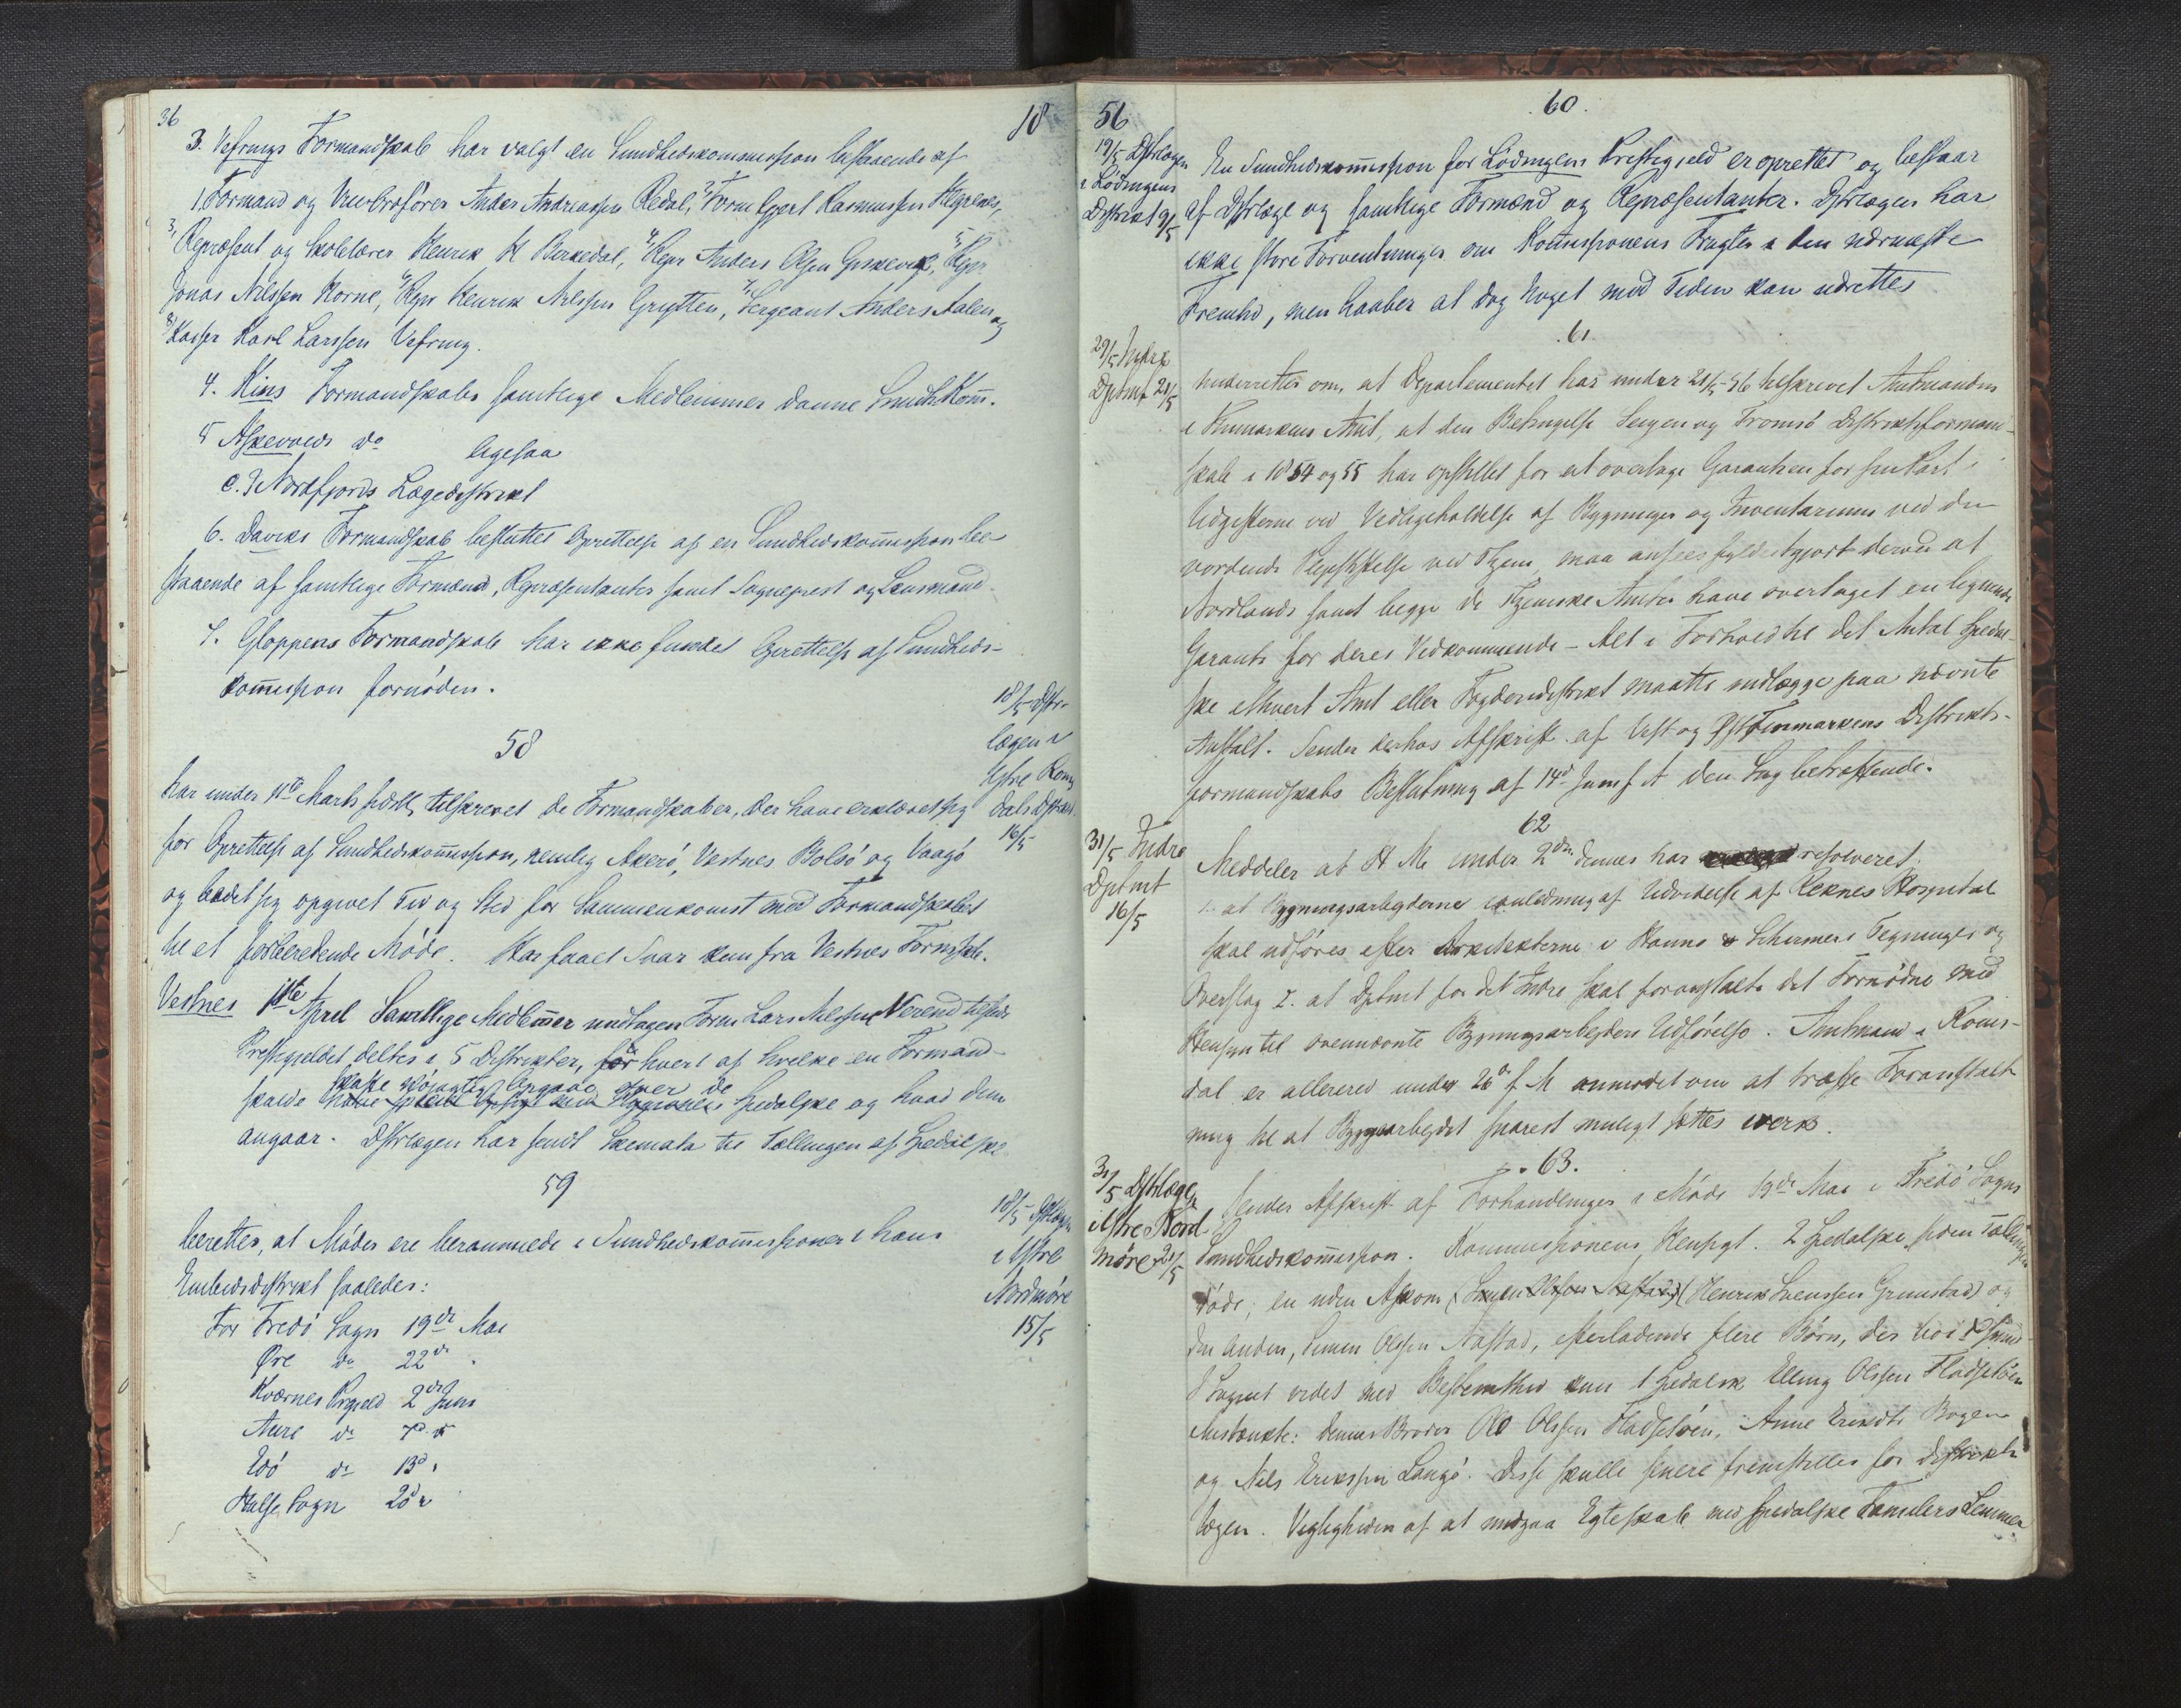 36
18
3. Vefrings Formandskab har valgt en Sundhedskommission bestaaende af
1. Formand og Anders Andreassen Redal, 2, Form Gjert Rasmussen
3, Repræsent og Skolelærer Henrik H Birkedal, 4, Repr Anders Olsen 5, Repr
Jonas Nilssen Horne, 6, Repr Henrik Nilssen Grytten, 7, Sergeant Anders Aalen og
8, Karl Larssen Vefring.
4. Kins Formandskabs samtlige Medlemmer danne SundhKom.
5 Askevolds do ligesaa
c. I Nordfjords Lægedistrikt
6. Daviks Formandskab besluttet Oprettelse af en Sundhedskommission be
staaende af samtlige Formænd, Repræsentanter samt Sogneprest og Lensmand
7. Gloppens Formandskab har ikke fundet Oprettelse af Sundheds-
kommission fornøden.
58
18/5 Dstr-
lægen i
Ytre Roms
dals Dstrikt
16/5
har under 11te Marts sidstl tilskrevet de Formandskaber, der have erklæret sig
for Oprettelse af Sundhedskommission, nemlig Akerö, Vestnes Bolsö og Vaagö
og bedet sig opgivet Tid og Sted for Sammenkomst med Formandskabet
til et forberedende Møde. Har faaet Svar kun fra Vestnes Formskb.
Vestnes 11te April Samtlige Medlemmer undtagen Form Lars Nilssen Nerend tilstede
Prestegjeldet deltes i 5 Distrikter, for hvert af hvilke en Formand
skaffe nöiagtigt Opgave over de
skulde Spedalske og hvad dem
angaar. Dstrlægen har sendt Skemata til Tællingen af Spedalske
59
18/5 Dstrlægen
i Ytre
Nordmöre
15/5
beretter, at Møder ere berammede i Sundhedskommissioner i hans
Embedsdistrikt saaledes:
For Fredö Sogn 19de Mai
Øre do 22de "
Kværnes Prgjeld 2den Juni
Aure do 7d "
Edö do 13d "
Halse Sogn 20d "
56
60.
19/5 Dstrlægen
i Lödingens
Distrikt 9/5
En Sundhedskommission for Lödingens Prestegjeld er oprettet og bestaar
af Dstrlæge og samtlige Formænd og Repræsentanter. Dstrlægen har
ikke store Forventninger om Kommissionens Frugter i den nærmeste
Fremtid, men haaber at dog Noget med Tiden kan udrettes
61.
29/5 Indre
Dptmt 21/5
Underrettes om, at Departementet har under 21/5 56 tilskrevet Amtmanden
i Finmarkens Amt, at den Betingelse Senjen og Tromsö Distriktsforman-
skab i 1854 og 55 har opstillet for at overtage Garantien for sin Part i
Udgifterne ved Vedligeholdelse af Bygninger og Inventarium ved den
vordende Pleiestiftelse ved Thjem, maa ansees fyldestgjort derved at
Nordlands samt begge de Thjemske Amter have overtaget en lignende
Garanti for deres Vedkommende - Alt i Forhold til det Antal Spedal-
ske ethvert Amt eller Fogderidistrikt maatte indlægge paa nævnte
Anstalt. Sender derhos Afskrift af Vest og Øst Finmarkens Distrikts-
formandskabs Beslutning af 14d Juni f A den Sag betræffende.
62
31/5 Indre
Dptmt
16/5
Meddeler at H M under 2den dennes har resolveret:
1. at Bygningsarbejderne i Anledning af Udvidelse af Reknes Hospital
skal udføres efter Arkitekterne v Hanno & Schirmers Tegninger og
Overslag 2. at Dptmt for det Indre skal foranstalte det Fornødne med
Hensyn til ovennævnte Bygningsarbejders Udførelse. Amtmand i Roms-
dal er allerede under 26d f M anmodet om at træffe Foranstalt
ning til at Bygnarbejdet snarest muligt sættes iverk.
63.
31/5 Dstrlægen
i Ytre Nord
möre 21/5
Sender Afskrift af Forhandlinger i Møde 19de Mai i Fredö Sogns
Sundhedskommission. Kommissionens Hensigt. 2 Spedalske siden Tællingen
døde; en uden Afkom (Henrik Svenssen Grimstad) og
den Anden, Simen Olssen Aastad, efterladende flere Børn, der
I Sognet vides med Bestemthed kun 1 Spedalsk Elling Olssen Fladsetöen
Mistænkte: Dennes Broder Ole Olssen Fladsetöen, Anne Eriksdtr Bogen
og Nils Erikssen Langö. Disse skulle senere fremstilles for Distrikts
lægen. Vigtigheden af at undgaa Egteskab med spedalske Familiers Lemmer